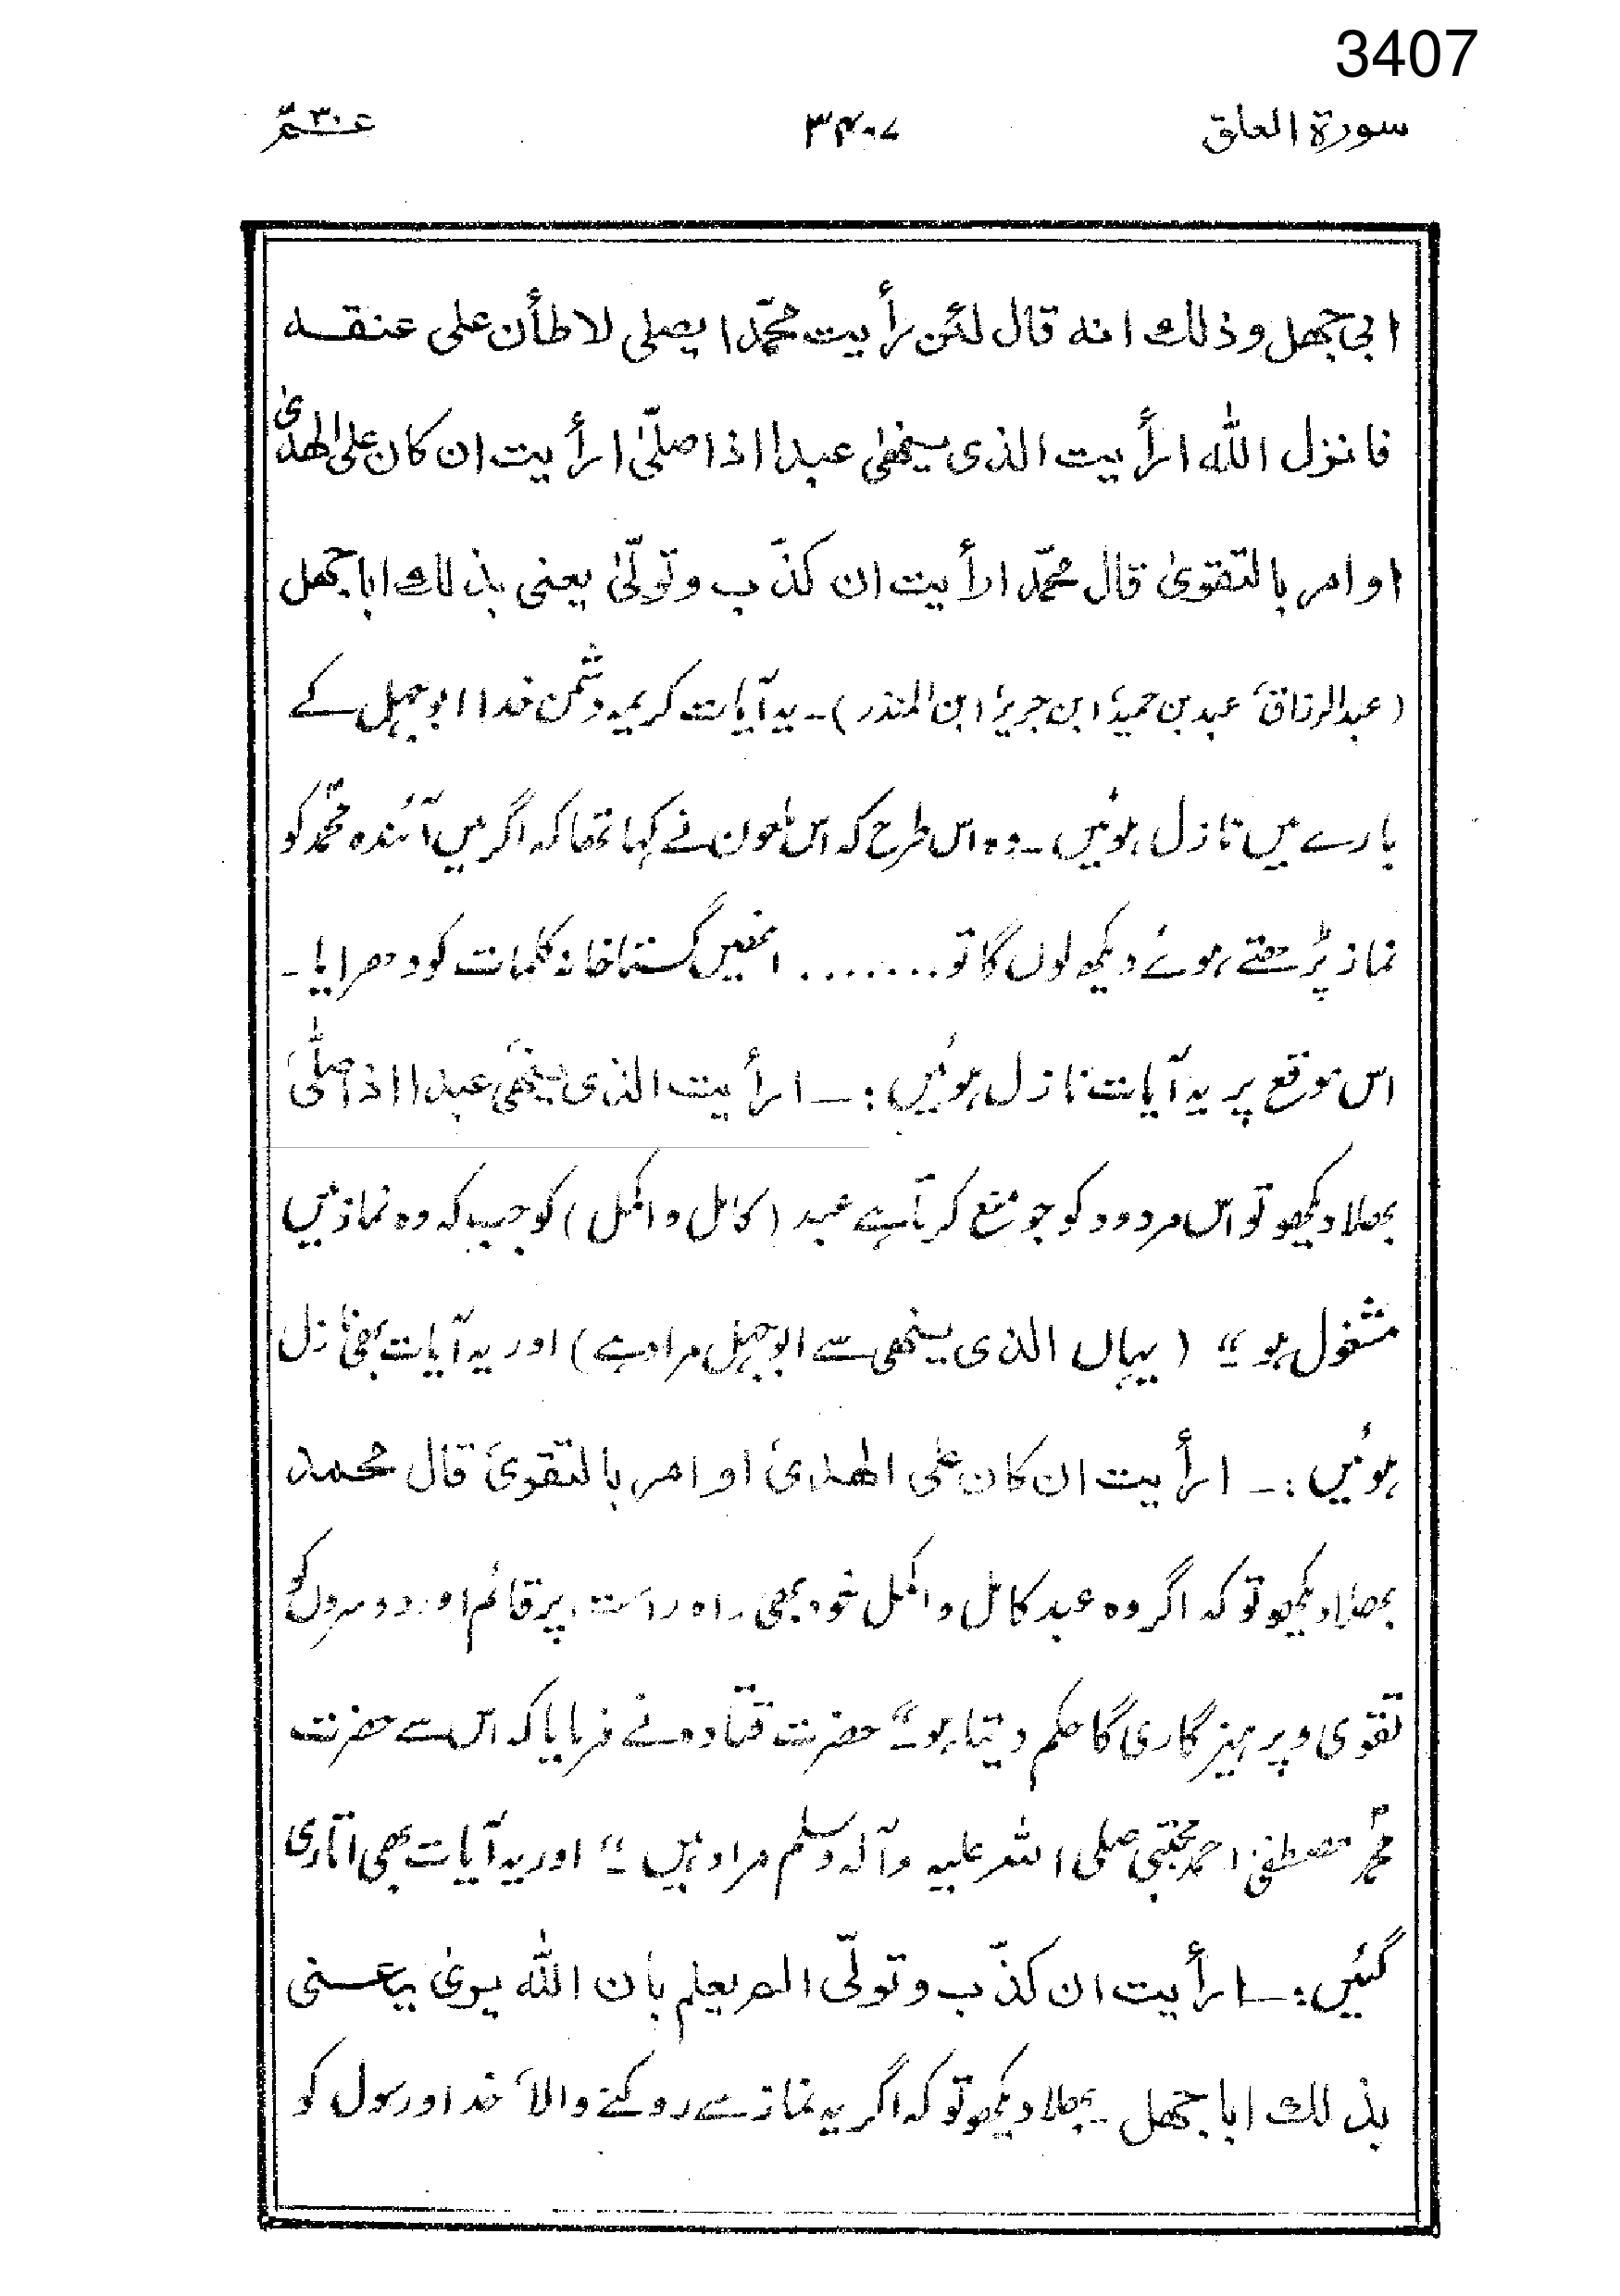 3407
سورة العلق ۳۴۰۷ عمّ ۳۰
ابی جھل وذلك انه قال لئن رأيت محمّدا يصلى لاطأن على عنقه
فانزل الله ارأيت الذى ينھىٰ عبدا اذا صلّىٰ ارأيت ان كان على الهدىٰ
او امر بالتقوىٰ قال محمّد ارأيت ان كذّب وتولّىٰ يعنى بذلك اباجھل
(عبدالرزاق، عبد بن حمید، ابن جریر، ابن المنذر)۔ یہ آیات کریمہ دشمن خدا ابوجہل کے
بارے میں نازل ہوئیں۔ وہ اس طرح کہ اس ملعون نے کہا تھا کہ اگر میں آئندہ محمدؐ کو
نماز پڑھتے ہوئے دیکھ لوں گا تو ....... انھیں گستاخانہ کلمات کو دھرایا۔
اس موقع پر یہ آیات نازل ہوئیں :۔ ارأيت الذى ينھىٰ عبدا اذا صلّىٰ
بھلا دیکھو تو اس مردود کو جو منع کرتا ہے عبد (کامل و اکمل) کو جب کہ وہ نماز میں
مشغول ہو ؀" (یہاں الذی ینھی سے ابوجہل مراد ہے) اور یہ آیات بھی نازل
ہوئیں :۔ ارأيت ان كان على الهدىٰ او امر بالتقوىٰ قال محمد
بھلا دیکھو تو کہ اگر وہ عبد کامل و اکمل خود بھی راہ راست پر قائم اور دوسروں کو
تقوی و پرہیزگاری کا حکم دیتا ہو۔" حضرت قتادہ نے فرمایا کہ اس سے حضرت
محمدؐ مصطفیٰ احمد مجتبیٰ صلی اللہ علیہ وآلہ وسلم مراد ہیں۔" اور یہ آیات بھی اتاری
گئیں :۔ ارأيت ان كذّب وتولّى الم يعلم بان الله يرىٰ يعنى
بذلك اباجھل ۔ بھلا دیکھو تو کہ اگر یہ نماز سے روکنے والا، خدا و رسول کو